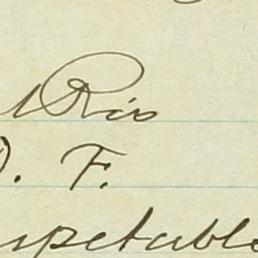 Rio
D. F.
spetable